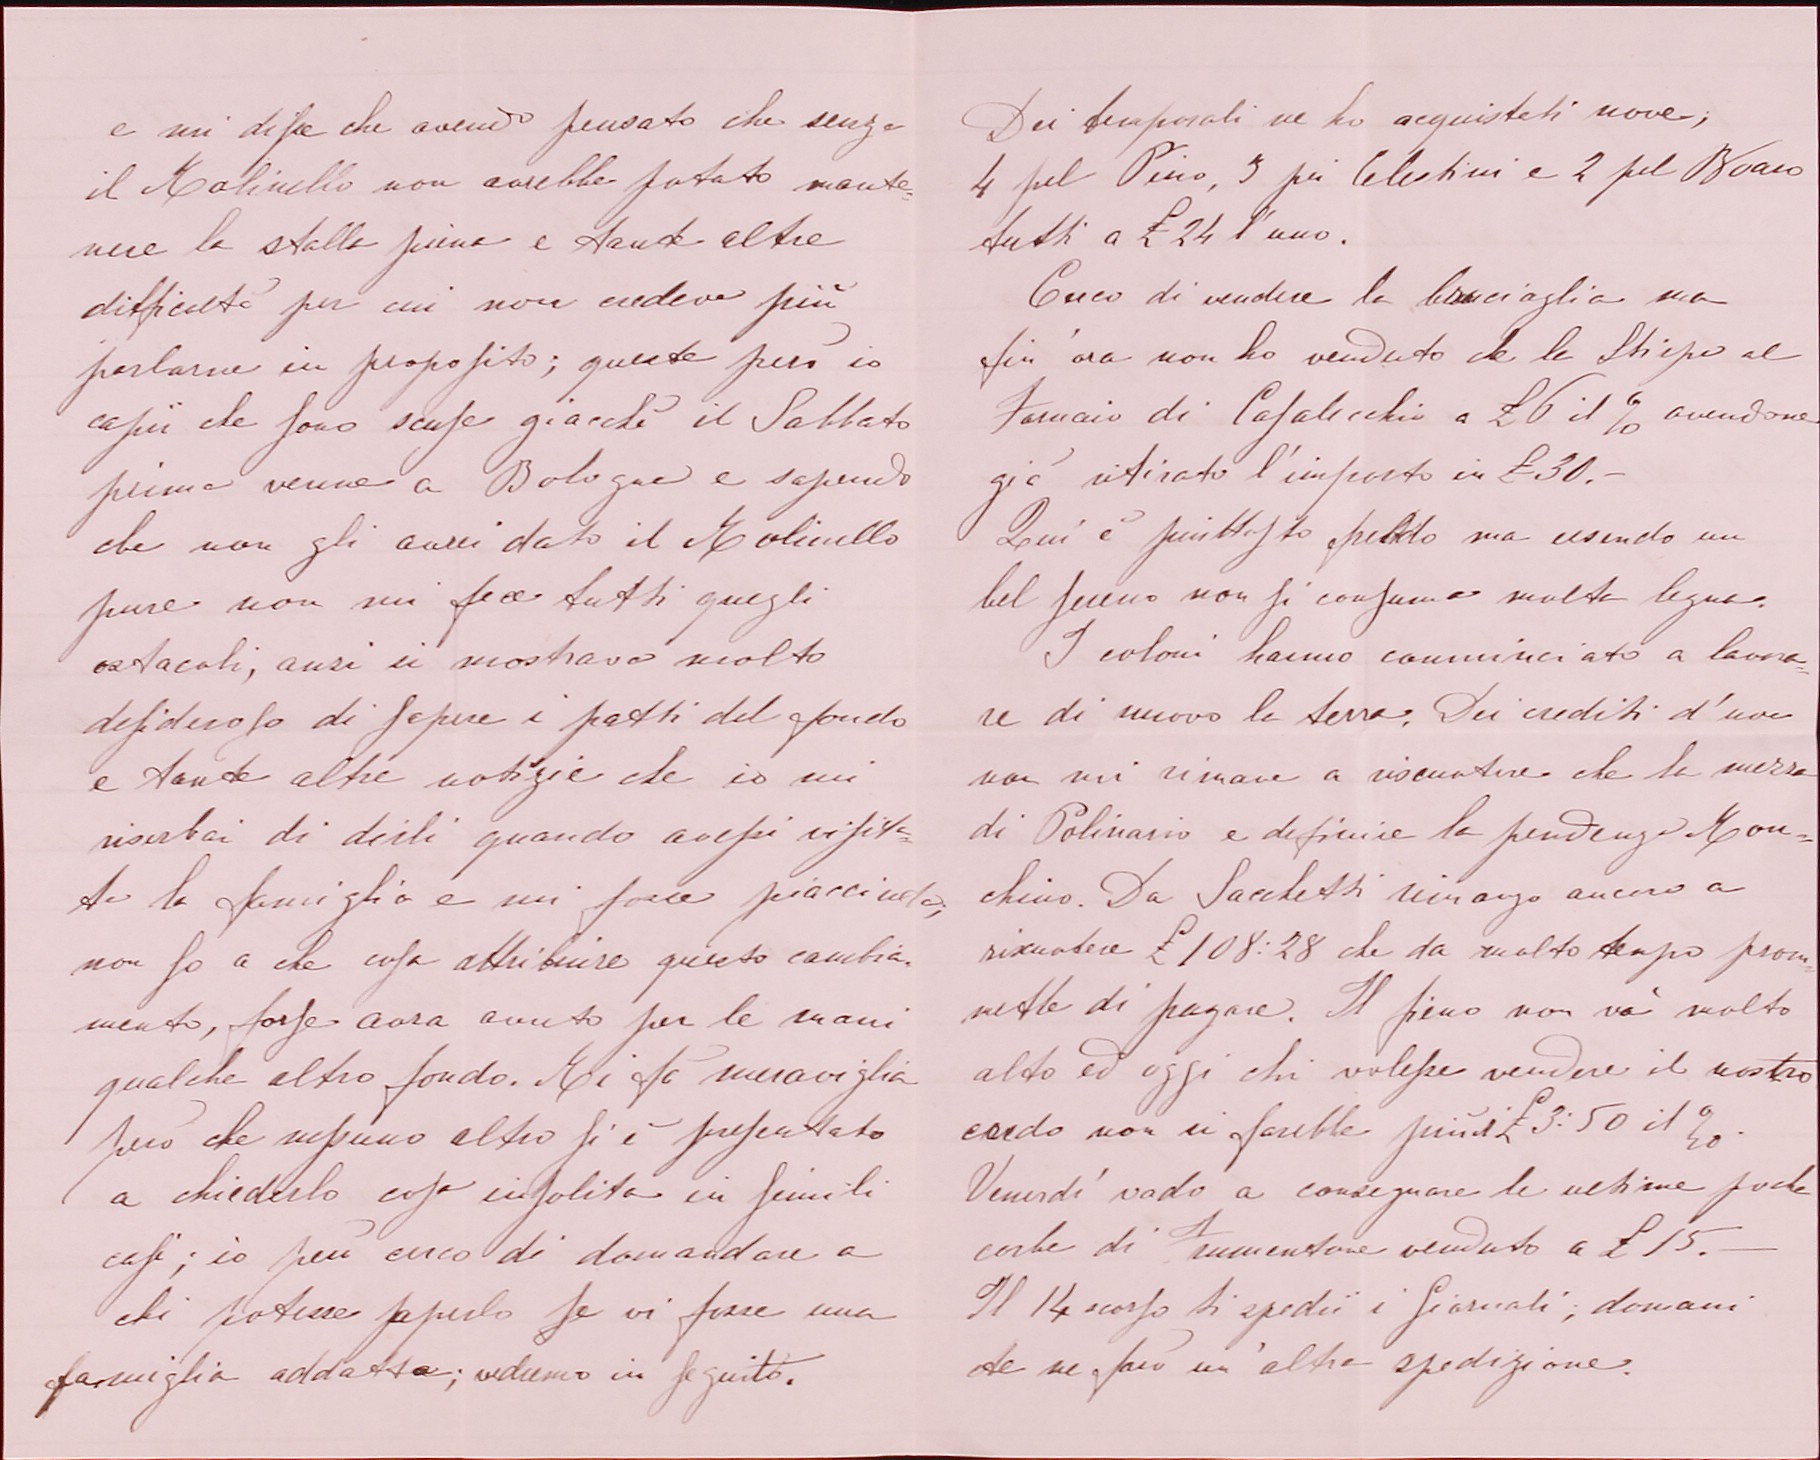 e mi disse che avendo pensato che senza
il Molinello non avrebbe potuto mante=
nere la stalla piena e tante altre
difficoltà per cui non credeva più
parlarne in proposito; queste però io
capii che sono scuse giacchè il Sabbato
prima venne a Bologna e sapendo
che non gli avrei dato il Molinello
pure non mi fece tutti quegli
ostacoli, anzi si mostrava molto
desideroso di sapere i patti del fondo
e tante altre notizie che io mi
riserbai di dirli quando avessi visita=
to la famiglia e mi fosse piacciuta,
non so a che cosa attribuire questo cambia=
mento, forse avra avuto per le mani
qualche altro fondo. Mi fà meraviglia
però che nessuno altro si è presentato
a chiederlo cosa insolita in simili
casi; io però cerco di domandare a
chi potesse saperlo se vi fosse una
famiglia addatta; vedremo in seguito.
Dei temporali ne ho acquisteti nove;
4 pel Pino, 3 pei Celestini e 2 pel Boaro
tutti a £ 24 l'uno.
Cerco di vendere la bruciaglia ma
fin'ora non ho venduto che la Stiepa al
Fornaio di Casalecchio a £ 6 il % avendone
già ritirato l'importo in £ 30.-
Quì è piuttosto freddo ma essendo un
bel sereno non si consuma molta legna.
I coloni hanno comminciato a lavora=
re di nuovo la terra. Dei crediti d'uva
non mi rimane a riscuotere che la mezza
di Polinario e definire la pendenza Mon=
chino. Da Sacchetti rimango ancora a
riscuotere £ 108:28 che da molto tempo prom=
mette di pagare. Il fieno non và molto
alto ed oggi chi volesse vendere il nostro
credo non si farebbe più di £ 3:50 il %.
Venerdì vado a consegnare le ultime poche
corbe di Frumentone venduto a £ 15.—
Il 14 scorso ti spedii i Giornali; domani
te ne farò un'altra spedizione.